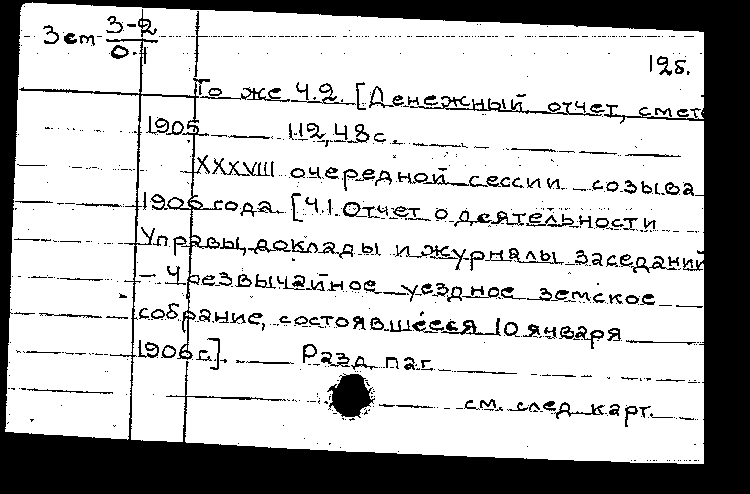 Зем 3-2
0.1
125.
То же Ч.2. [Денежный отчет, смета
1905 112, 48 с.
XXXVIII очередной сессии созыва
1906 года. [Ч.1. Отчет о деятельности
Управы, доклады и журналы заседаний
– Чрезвычайное уездное земское
собрание, состоявшееся 10 января
1906 г.]. Разд. паг.
см. след. карт.